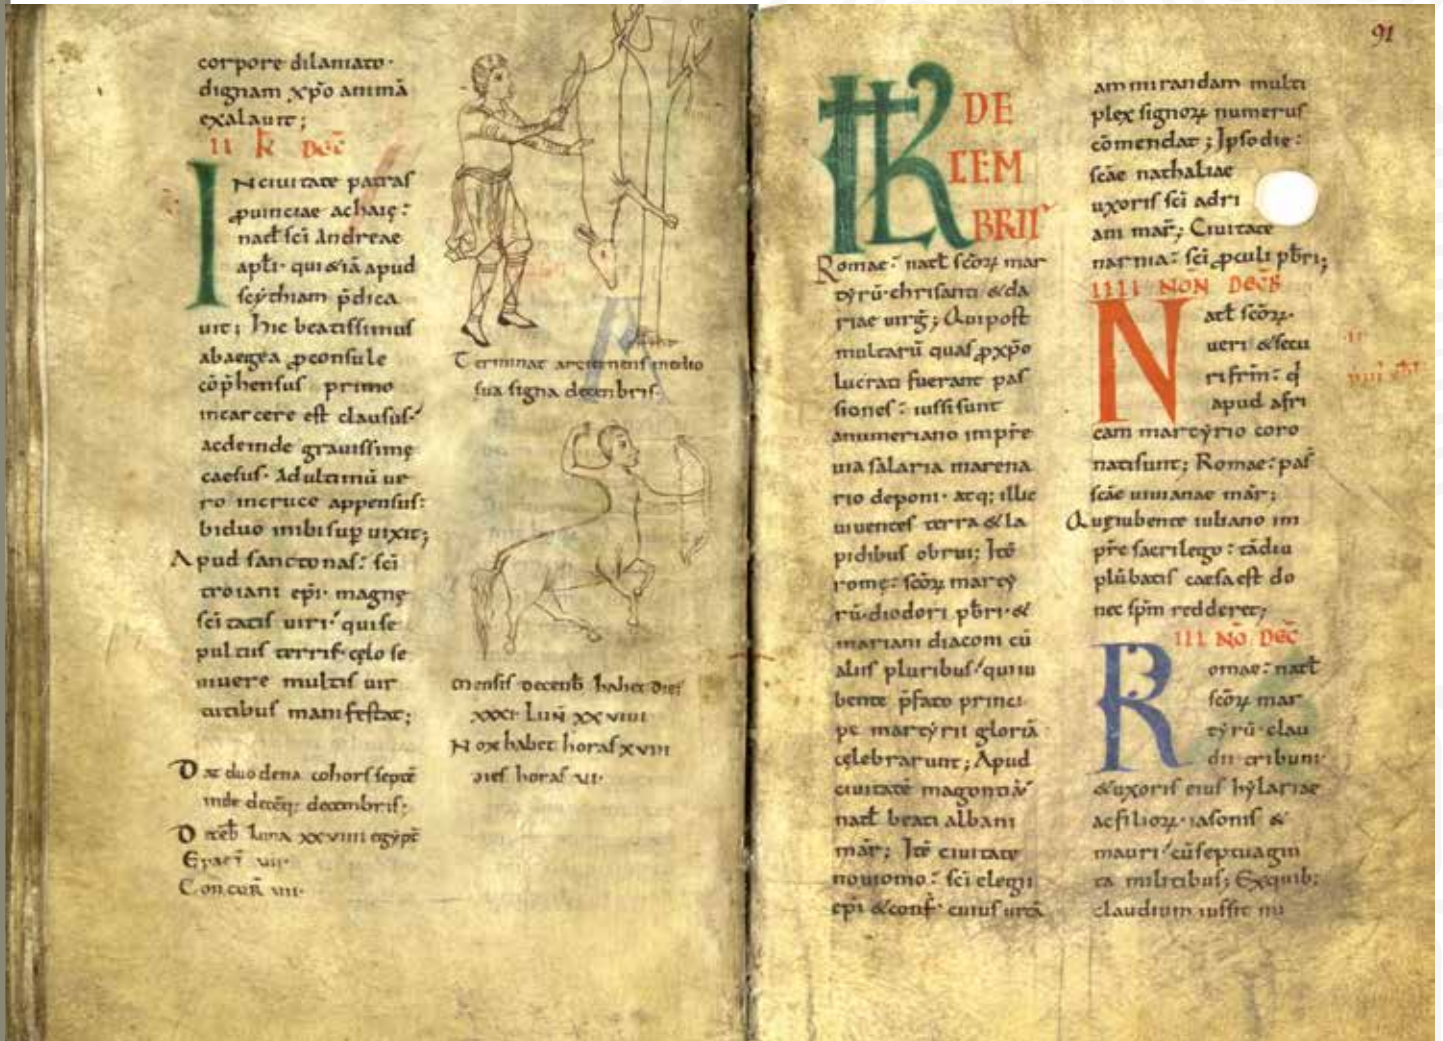 corpore dilaniato·
dignam xp̄o animā
exalauit;
II K̄ DEC̄
INciuitate patras
ꝓuinciae achaię:
nat̄ sc̄i Andreae
apl̄i· qui &iā apud
scẏthiam p̄dica
uit; hic beatissimus
abaegea ꝓconsule
cōp̄hensus primo
incarcere est clausus·
acdeinde grauissime
caesus· Adultimū ue
ro incruce appensus:
biduo inibi sup uixit;
Apud sanctonas: sc̄i
troiani ep̄i· magnę
sc̄itatis uiri· quise
pultus terris· cęlo se
uiuere multis uir
tutibus manifestat;
Dat duodena cohors septē
inde decēq; decembris;
Decēb̄ luna xxviiii egẏpt̄
Epact̄ vii·
Concur̄ vii·
Terminat arcitenens medio
sua signa decembris·
mensis decemb̄ habet dies
xxxi· Lun̄ xxviiii
Nox habet horas xviii
dies horas vi·
91
KL DE
CEM
BRII
Romae: nat̄ scōꝝ mar
tẏrū· chrisanti & da
riae uirḡ; Qui post
multarū quas ꝓ xp̄o
lucrati fuerant pas
siones: iussi sunt
anumeriano imp̄re
uia salaria inarena
rio deponi· atq; illic
uiuentes terra & la
pidibus obrui; Itē
romę: scōꝝ martẏ
rū· diodori pb̄ri· &
mariani diaconi cū
aliis pluribus· quiiu
bente p̄fato princi
pe martẏrii gloriā
cęlebrarunt; Apud
ciuitatē magontiā
nat̄ beati albani
mar̄; Itē ciuitate
nouiomo: sc̄i elegii
ep̄i & conf̄· cuius uitā
ammirandam multi
plex signoꝝ numerus
cōmendat; Ipsodie:
scāe nathaliae
uxoris sc̄i adri
ani mar̄; Ciuitate
narnia: sc̄i ꝓculi pb̄ri;
IIII NON̄ DECB̄
Nat̄ scōꝝ·
ueri & secu
ri frīn: q̄
apud afri
cam martẏrio coro
nati sunt; Romae: pas̄
scāe uiuianae mar̄;
Quę iubente iuliano im
p̄re sacrilego: tādiu
plūbatis caesa est do
nec sp̄m redderet;
III NO̅ DEC̄
Romae: nat̄
scōꝝ mar
tẏrū· clau
dii tribuni·
& uxoris eius hẏlariae
ac filioꝝ· iasonis &
mauri· cū septuagin
ta militibus; Ex quib;
claudium iussit nu